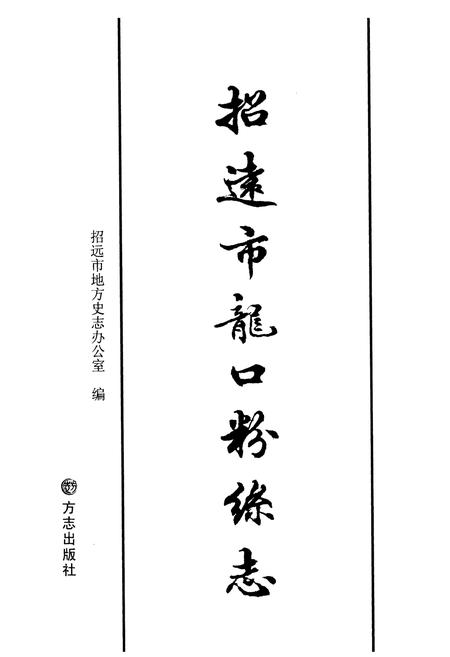 招遠市龍口粉絲志
招远市地方史志办公室 编
方志出版社